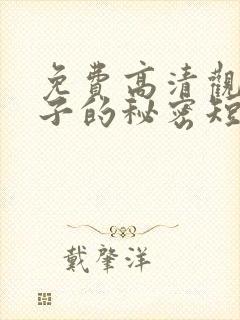 免費高清觀
子的秘密短
戴肇洋